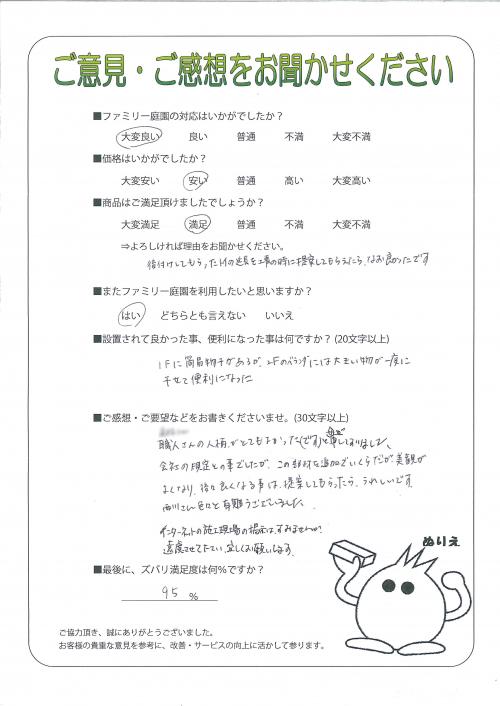 ご意見・ご感想をお聞かせください
■ファミリー庭園の対応はいかがでしたか?
大変良い 良い 普通 不満 大変不満
■価格はいかがでしたか?
大変安い 安い 普通 高い 大変高い
■商品はご満足頂けましたでしょうか?
大変満足 満足 普通 不満 大変不満
⇒よろしければ理由をお聞かせください。
後付けしてもらった の を工事の時に提案してもらえたら、なお良かったです
■またファミリー庭園を利用したいと思いますか?
はい どちらとも言えない いいえ
■設置されて良かった事、便利になった事は何ですか? (20文字以上)
1Fに 物干があるが、2Fのベランダには大きい物が一度に
干せて便利になった
■ご感想・ご要望などをお書きくださいませ。(30文字以上)
職人さんの人柄がとてもよかった(です)
会社の規定との事でしたが、この部材を追加でいくらだが美観が
よくなり、後々良くなる事は、提案してもらったら、うれしいです。
西川さん色々と有難うございました。
インターネットの施工現場の掲示はすみませんが
遠慮させて下さい、宜しくお願いします。
■最後に、ズバリ満足度は何%ですか?
95 %
ぬりえ
ご協力頂き、誠にありがとうございました。
お客様の貴重な意見を参考に、改善・サービスの向上に活かして参ります。